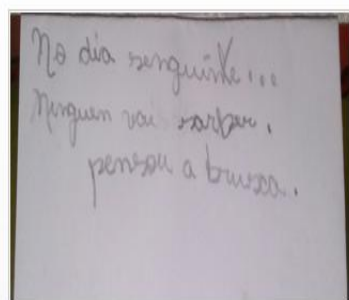 No dia senguinte...
Ninguen vai sarber.
pensou a bruxa.